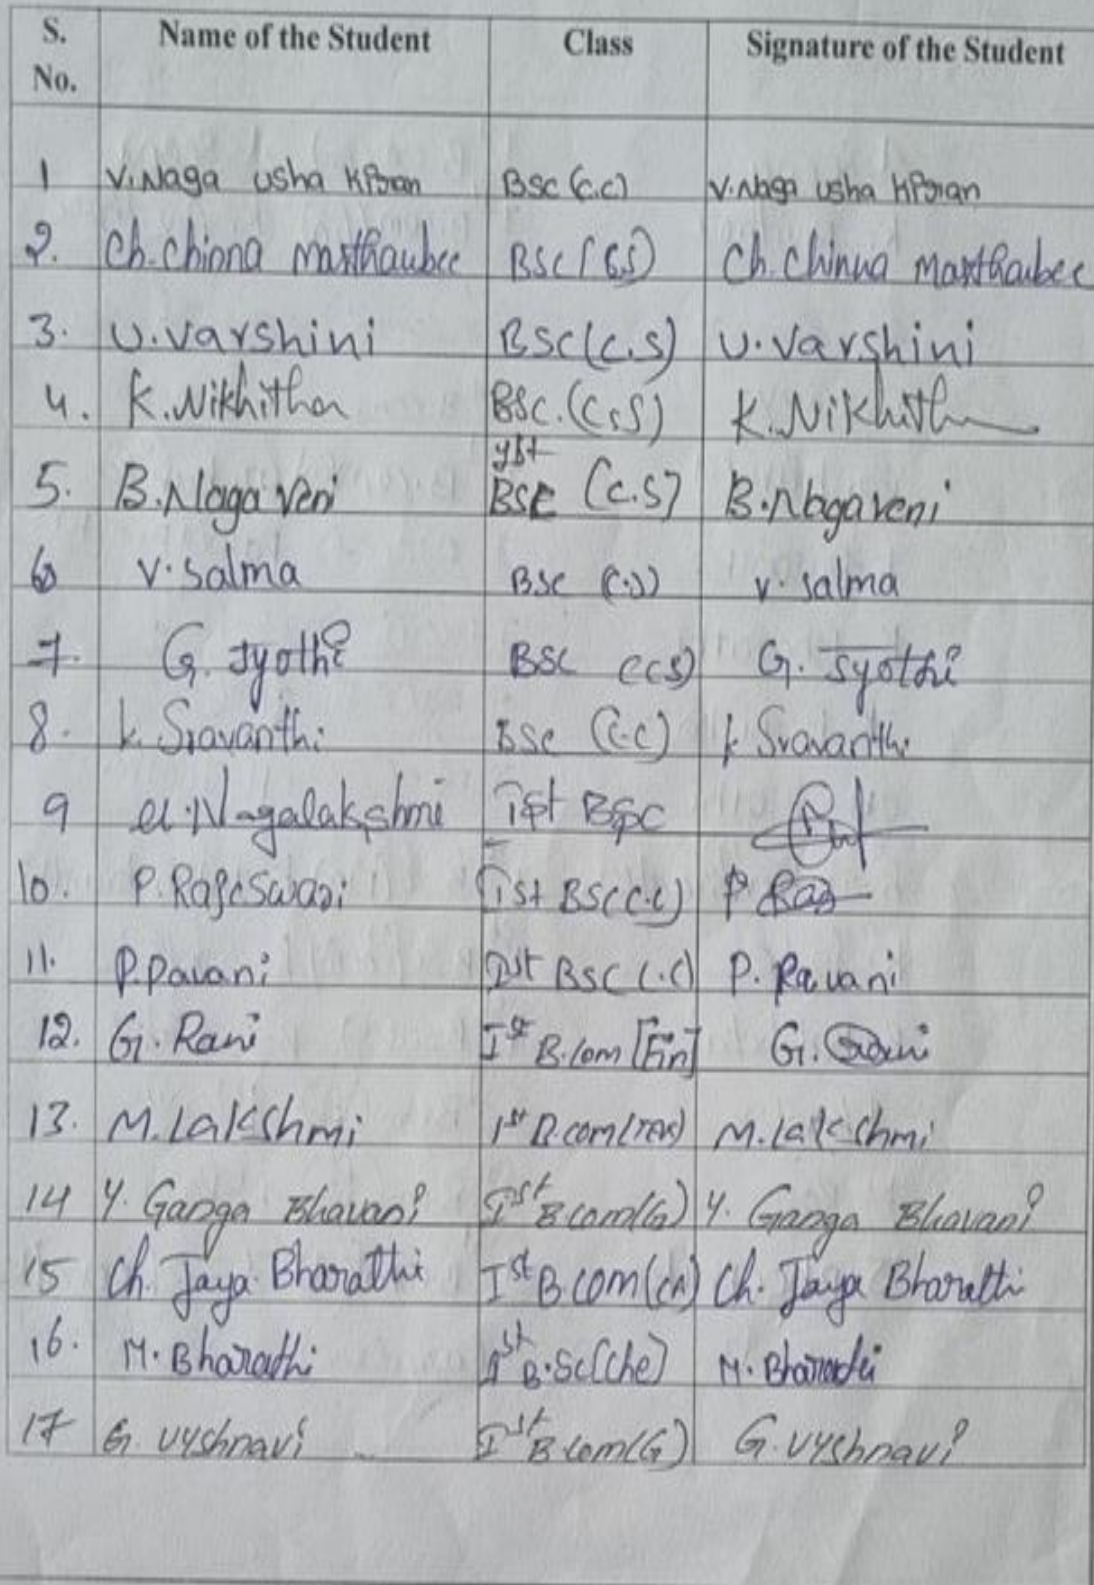 S. No. Name of the Student Class Signature of the Student
1 V.Naga usha Kiran BSC (C.C) V.Naga usha Kiran
2. Ch. Chinna masthanbee BSC (CS) Ch. Chinna masthanbee
3. U.Varshini BSC(C.S) U.Varshini
4. K.Nikhitha BSC.(C.S) K.Nikhitha
5. B.Naga Veni BSC (C.S) B.Nagaveni
6 V.Salma BSC (C.S) V.Salma
7. G. Jyothi BSC (CS) G. Jyothi
8. K Sravanthi BSC (C.C) K Sravanthi
9 Nagalakshmi Ist BSC
10. P. Rajeswari Ist BSC(C.C) P
11. P.Pavani Ist BSC C.C) P. Pavani
12. G. Rani Ist B.Com [Fin] G. Rani
13. M.Lakshmi Ist B.com M.Lakshmi
14 Y. Ganga Bhavani Ist B com(G) Y. Ganga Bhavani
15 Ch. Jaya Bharathi Ist B com(CA) Ch. Jaya Bharathi
16. M. Bharathi Ist B.Sc(Che) M. Bharathi
17 G vyshnavi Ist B.com(G) G.vyshnavi